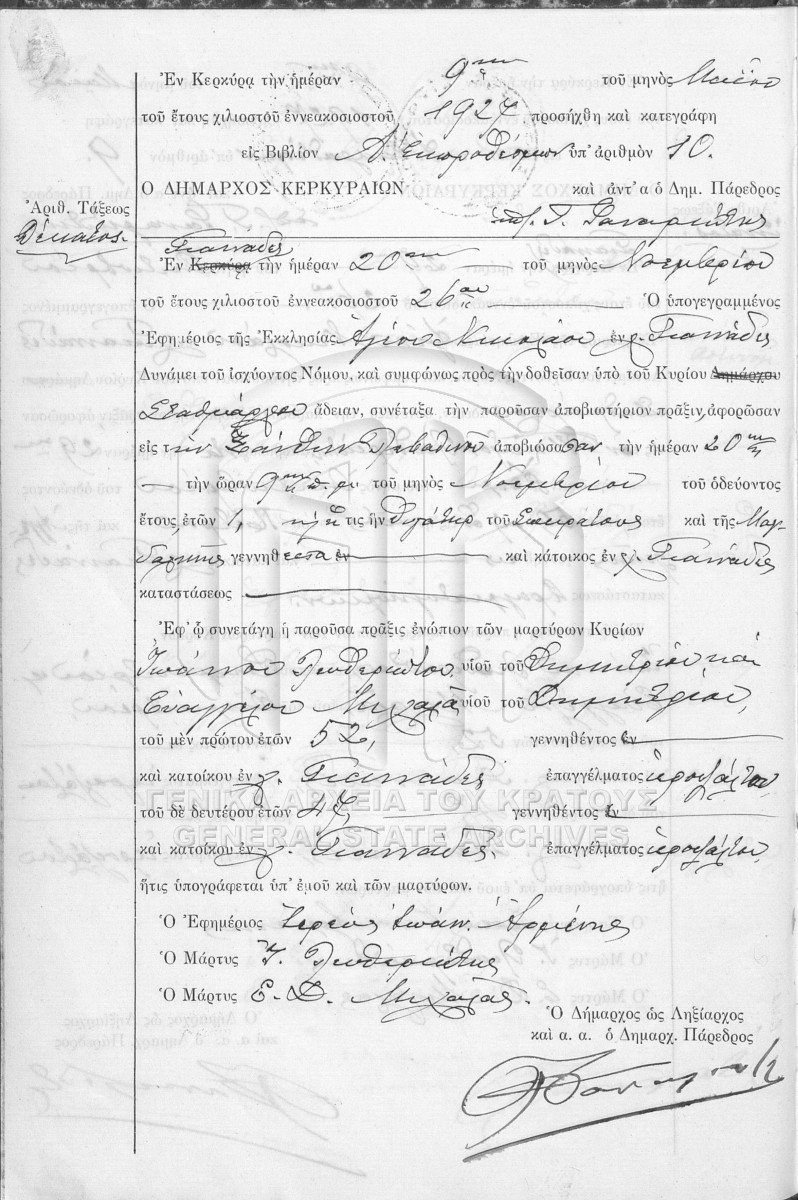 Ἐν Κερκύρᾳ τὴν ἡμέραν 9ην τοῦ μηνὸς Μαΐου
τοῦ ἔτους χιλιοστοῦ ἐννεακοσιοστοῦ 1927 προσήχθη καὶ κατεγράφη
εἰς Βιβλίον Α. Ἐκπροθέσμων ὑπ' ἀριθμὸν 10.
Ο ΔΗΜΑΡΧΟΣ ΚΕΡΚΥΡΑΙΩΝ καὶ ἀντ' α ὁ Δημ. Πάρεδρος
Ἀριθ. Τάξεως
Δέκατος
Γιαννάδες
Ἐν Κερκύρᾳ τὴν ἡμέραν 20ην τοῦ μηνὸς Νοεμβρίου
τοῦ ἔτους χιλιοστοῦ ἐννεακοσιοστοῦ 26ου Ὁ ὑπογεγραμμένος
Ἐφημέριος τῆς Ἐκκλησίας Ἁγίου Νικολάου ἐν χ. Γιαννάδες
Δυνάμει τοῦ ἰσχύοντος Νόμου, καὶ συμφώνως πρὸς τὴν δοθεῖσαν ὑπὸ τοῦ Κυρίου Δημάρχου
Σταθμάρχου ἄδειαν, συνέταξα τὴν παροῦσαν ἀποβιωτήριον πρᾶξιν, ἀφορῶσαν
εἰς τὴν Ξάνθην ἀποβιώσασαν τὴν ἡμέραν 20ην
τὴν ὥραν 9ην π. μ. τοῦ μηνὸς Νοεμβρίου τοῦ ὁδεύοντος
ἔτους, ἐτῶν 1, ἥτις ἦν θυγάτηρ τοῦ Σωκράτους καὶ τῆς Μαγ
δαληνῆς γεννηθεῖσα ἐν καὶ κάτοικος ἐν χ. Γιαννάδες
καταστάσεως
Ἐφ' ᾧ συνετάγη ἡ παροῦσα πρᾶξις ἐνώπιον τῶν μαρτύρων Κυρίων
Ἰωάννου Λευθεριώτου, υἱοῦ τοῦ Δημητρίου καὶ
Εὐαγγέλου Μιχαλᾶ υἱοῦ τοῦ Δημητρίου,
τοῦ μὲν πρώτου ἐτῶν 52, γεννηθέντος ἐν
καὶ κατοίκου ἐν χ. Γιαννάδες ἐπαγγέλματος ἱεροψάλτου
ΓΕΝΙΚΑ ΑΡΧΕΙΑ ΤΟΥ ΚΡΑΤΟΥΣ
τοῦ δὲ δευτέρου ἐτῶν 47 γεννηθέντος ἐν
GENERAL STATE ARCHIVES
καὶ κατοίκου ἐν χ. Γιαννάδες. ἐπαγγέλματος ἱεροψάλτου,
ἥτις ὑπογράφεται ὑπ' ἐμοῦ καὶ τῶν μαρτύρων.
Ὁ Ἐφημέριος Ἱερεὺς Ἰωάν. Ἀρμένης
Ὁ Μάρτυς Ἰ. Λευθεριώτης
Ὁ Μάρτυς Ε. Δ. Μιχαλᾶς.
Ὁ Δήμαρχος ὡς Ληξίαρχος
καὶ α. α. ὁ Δημαρχ. Πάρεδρος